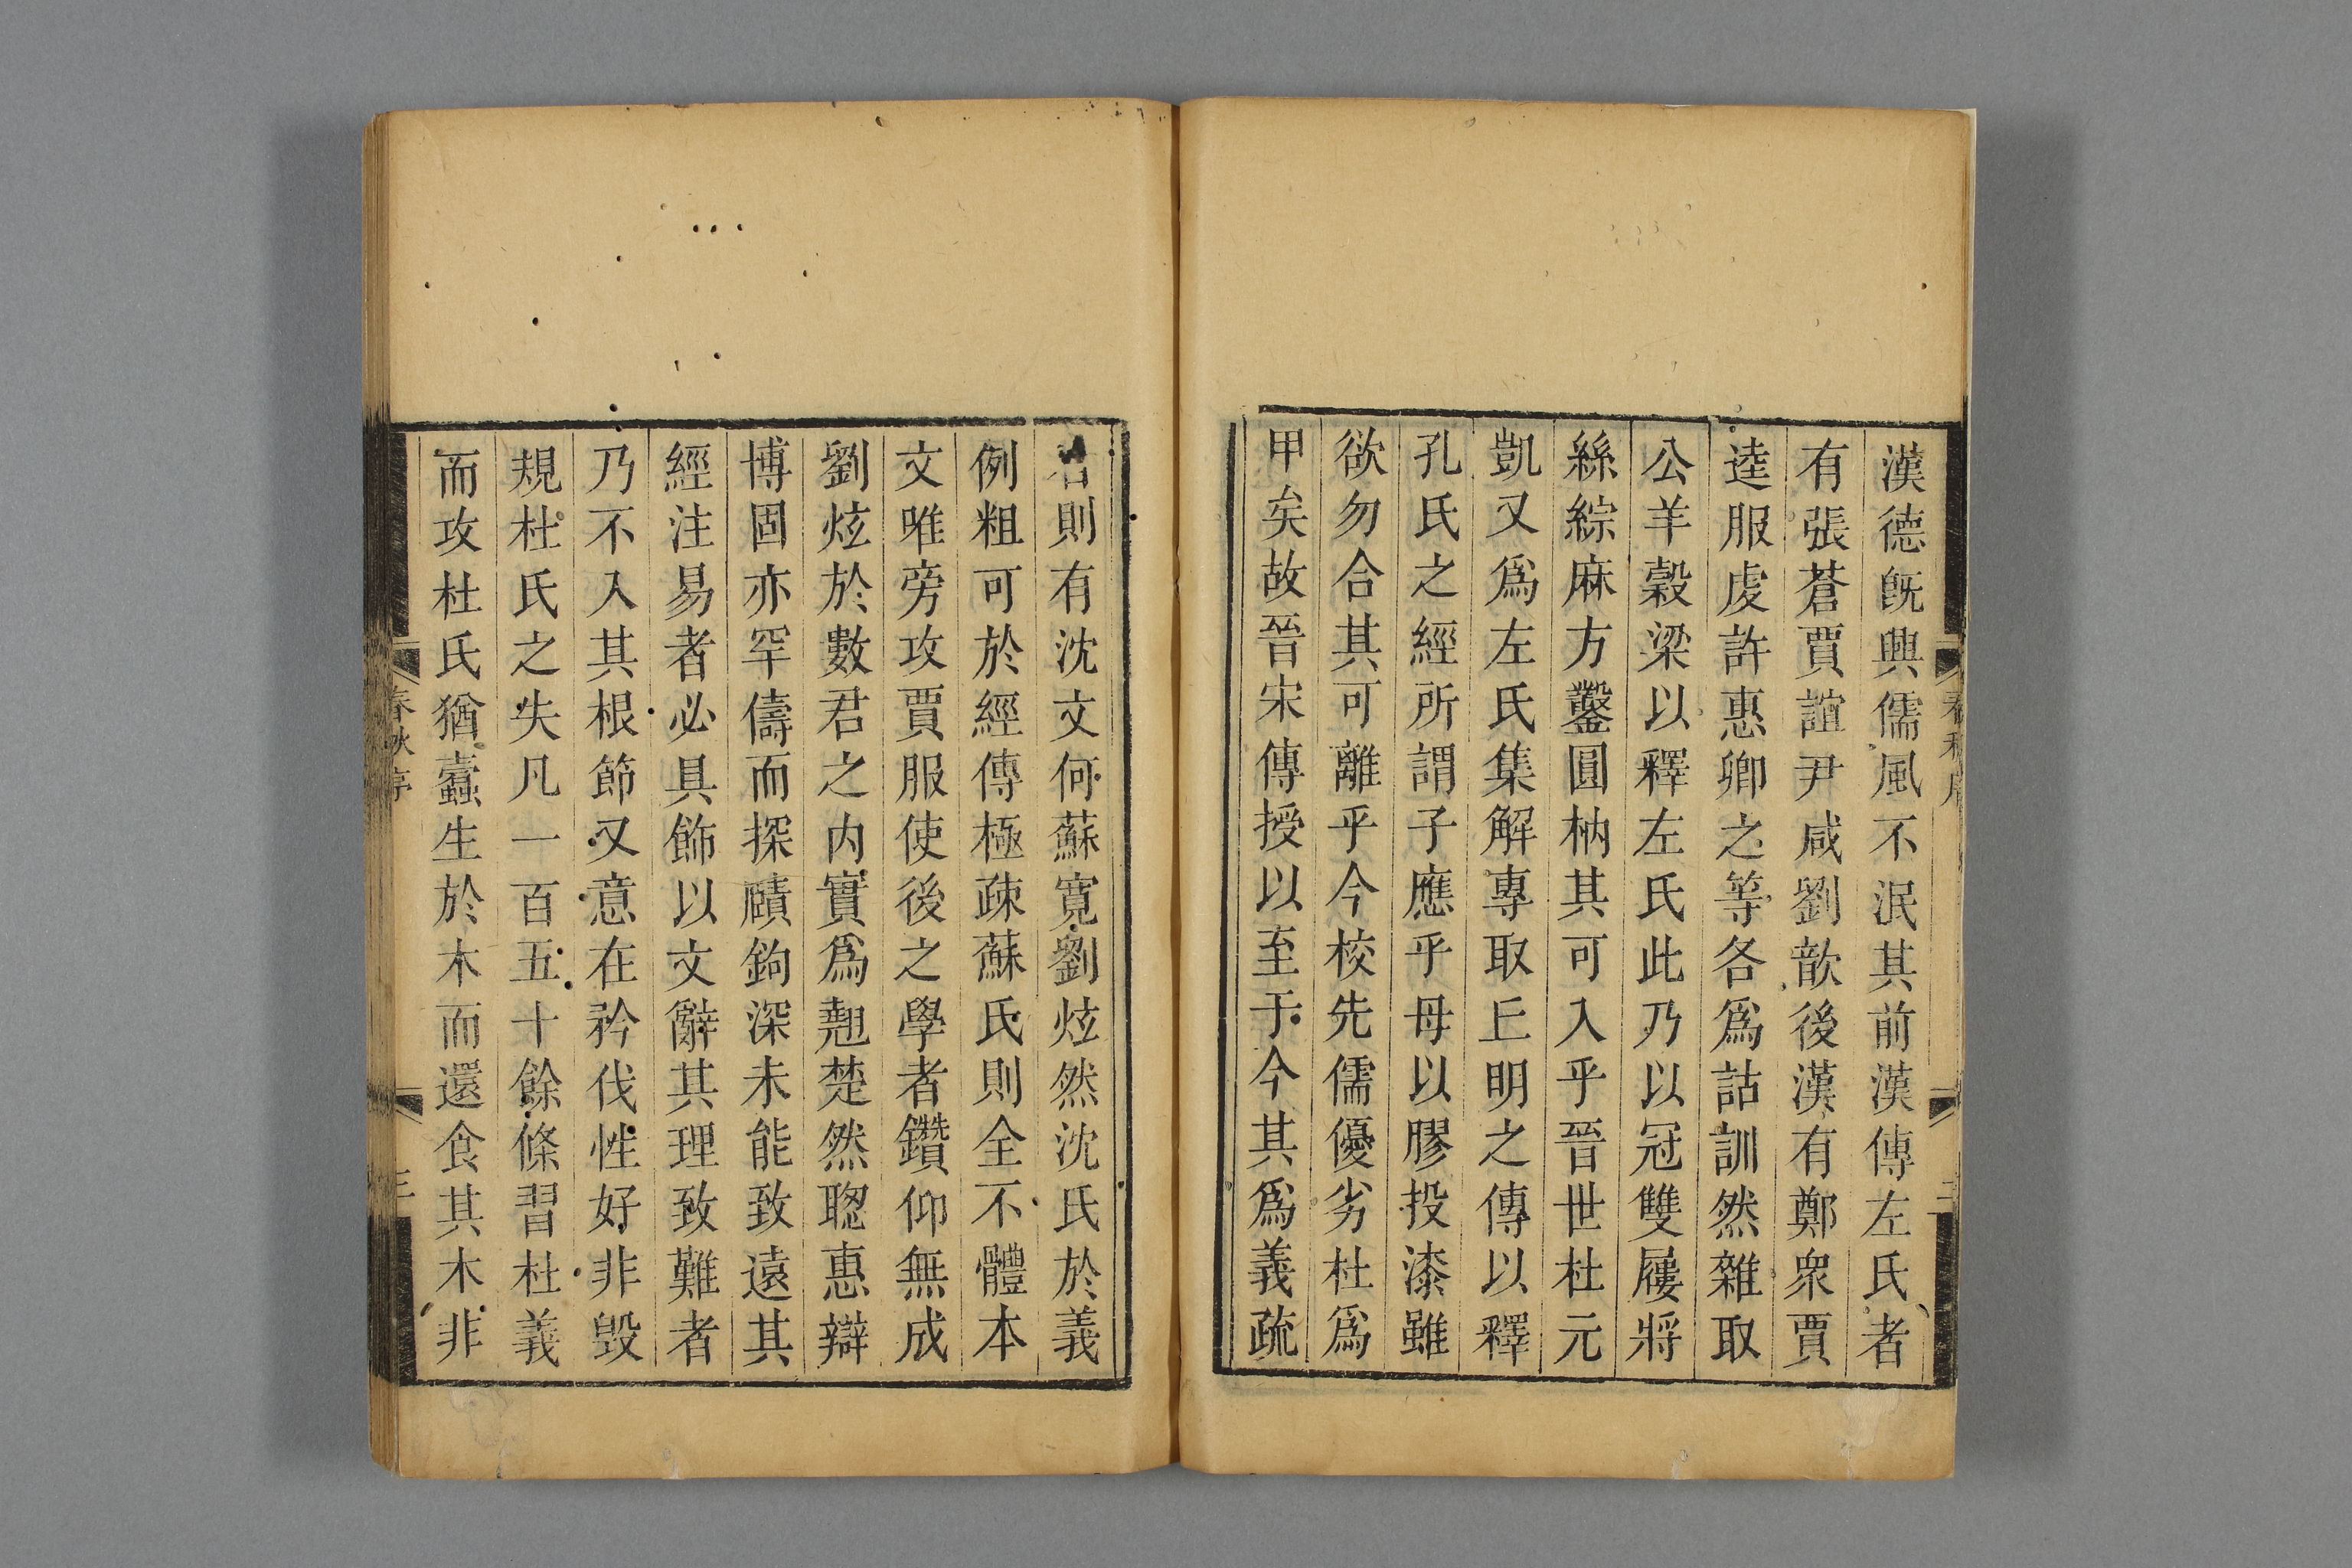 漢德旣興儒風不泯其前漢傳左氏者
有張蒼賈誼尹咸劉歆後漢有鄭衆賈
逵服虔許惠卿之等各爲詁訓然雜取
公羊穀梁以釋左氏此乃以冠雙屨將
絲綜麻方鑿圓枘其可入乎晉世杜元
凱又爲左氏集解專取丘明之傳以釋
孔氏之經所謂子應乎母以膠投漆雖
欲勿合其可離乎今校先儒優劣杜爲
甲矣故晉宋傳授以至于今其爲義疏
者則有沈文何蘇寬劉炫然沈氏於義
例粗可於經傳極疎蘇氏則全不體本
文唯旁攻賈服使後之學者鑽仰無成
劉炫於數君之内實爲翹楚然聦惠辯
博固亦罕儔而探賾鉤深未能致遠其
經注易者必具飾以文辭其理致難者
乃不入其根節又意在矜伐性好非毀
規杜氏之失凡一百五十餘條習杜義
而攻杜氏猶蠹生於木而還食其木非
春秋序